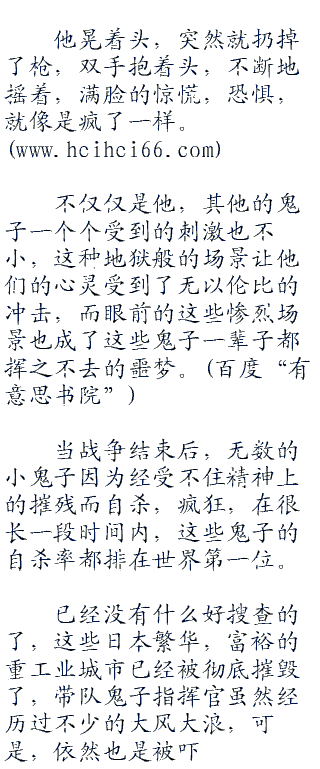 他晃着头，突然就扔掉
了枪，双手抱着头，不断地
摇着，满脸的惊慌，恐惧，
就像是疯了一样。
(www.hcihci66.com)
不仅仅是他，其他的鬼
子一个个受到的刺激也不
小，这种地狱般的场景让他
们的心灵受到了无以伦比的
冲击，而眼前的这些惨烈场
景也成了这些鬼子一辈子都
挥之不去的噩梦。(百度“有
意思书院”)
当战争结束后，无数的
小鬼子因为经受不住精神上
的摧残而自杀，疯狂，在很
长一段时间内，这些鬼子的
自杀率都排在世界第一位。
已经没有什么好搜查的
了，这些日本繁华，富裕的
重工业城市已经被彻底摧毁
了，带队鬼子指挥官虽然经
历过不少的大风大浪，可
是，依然也是被吓